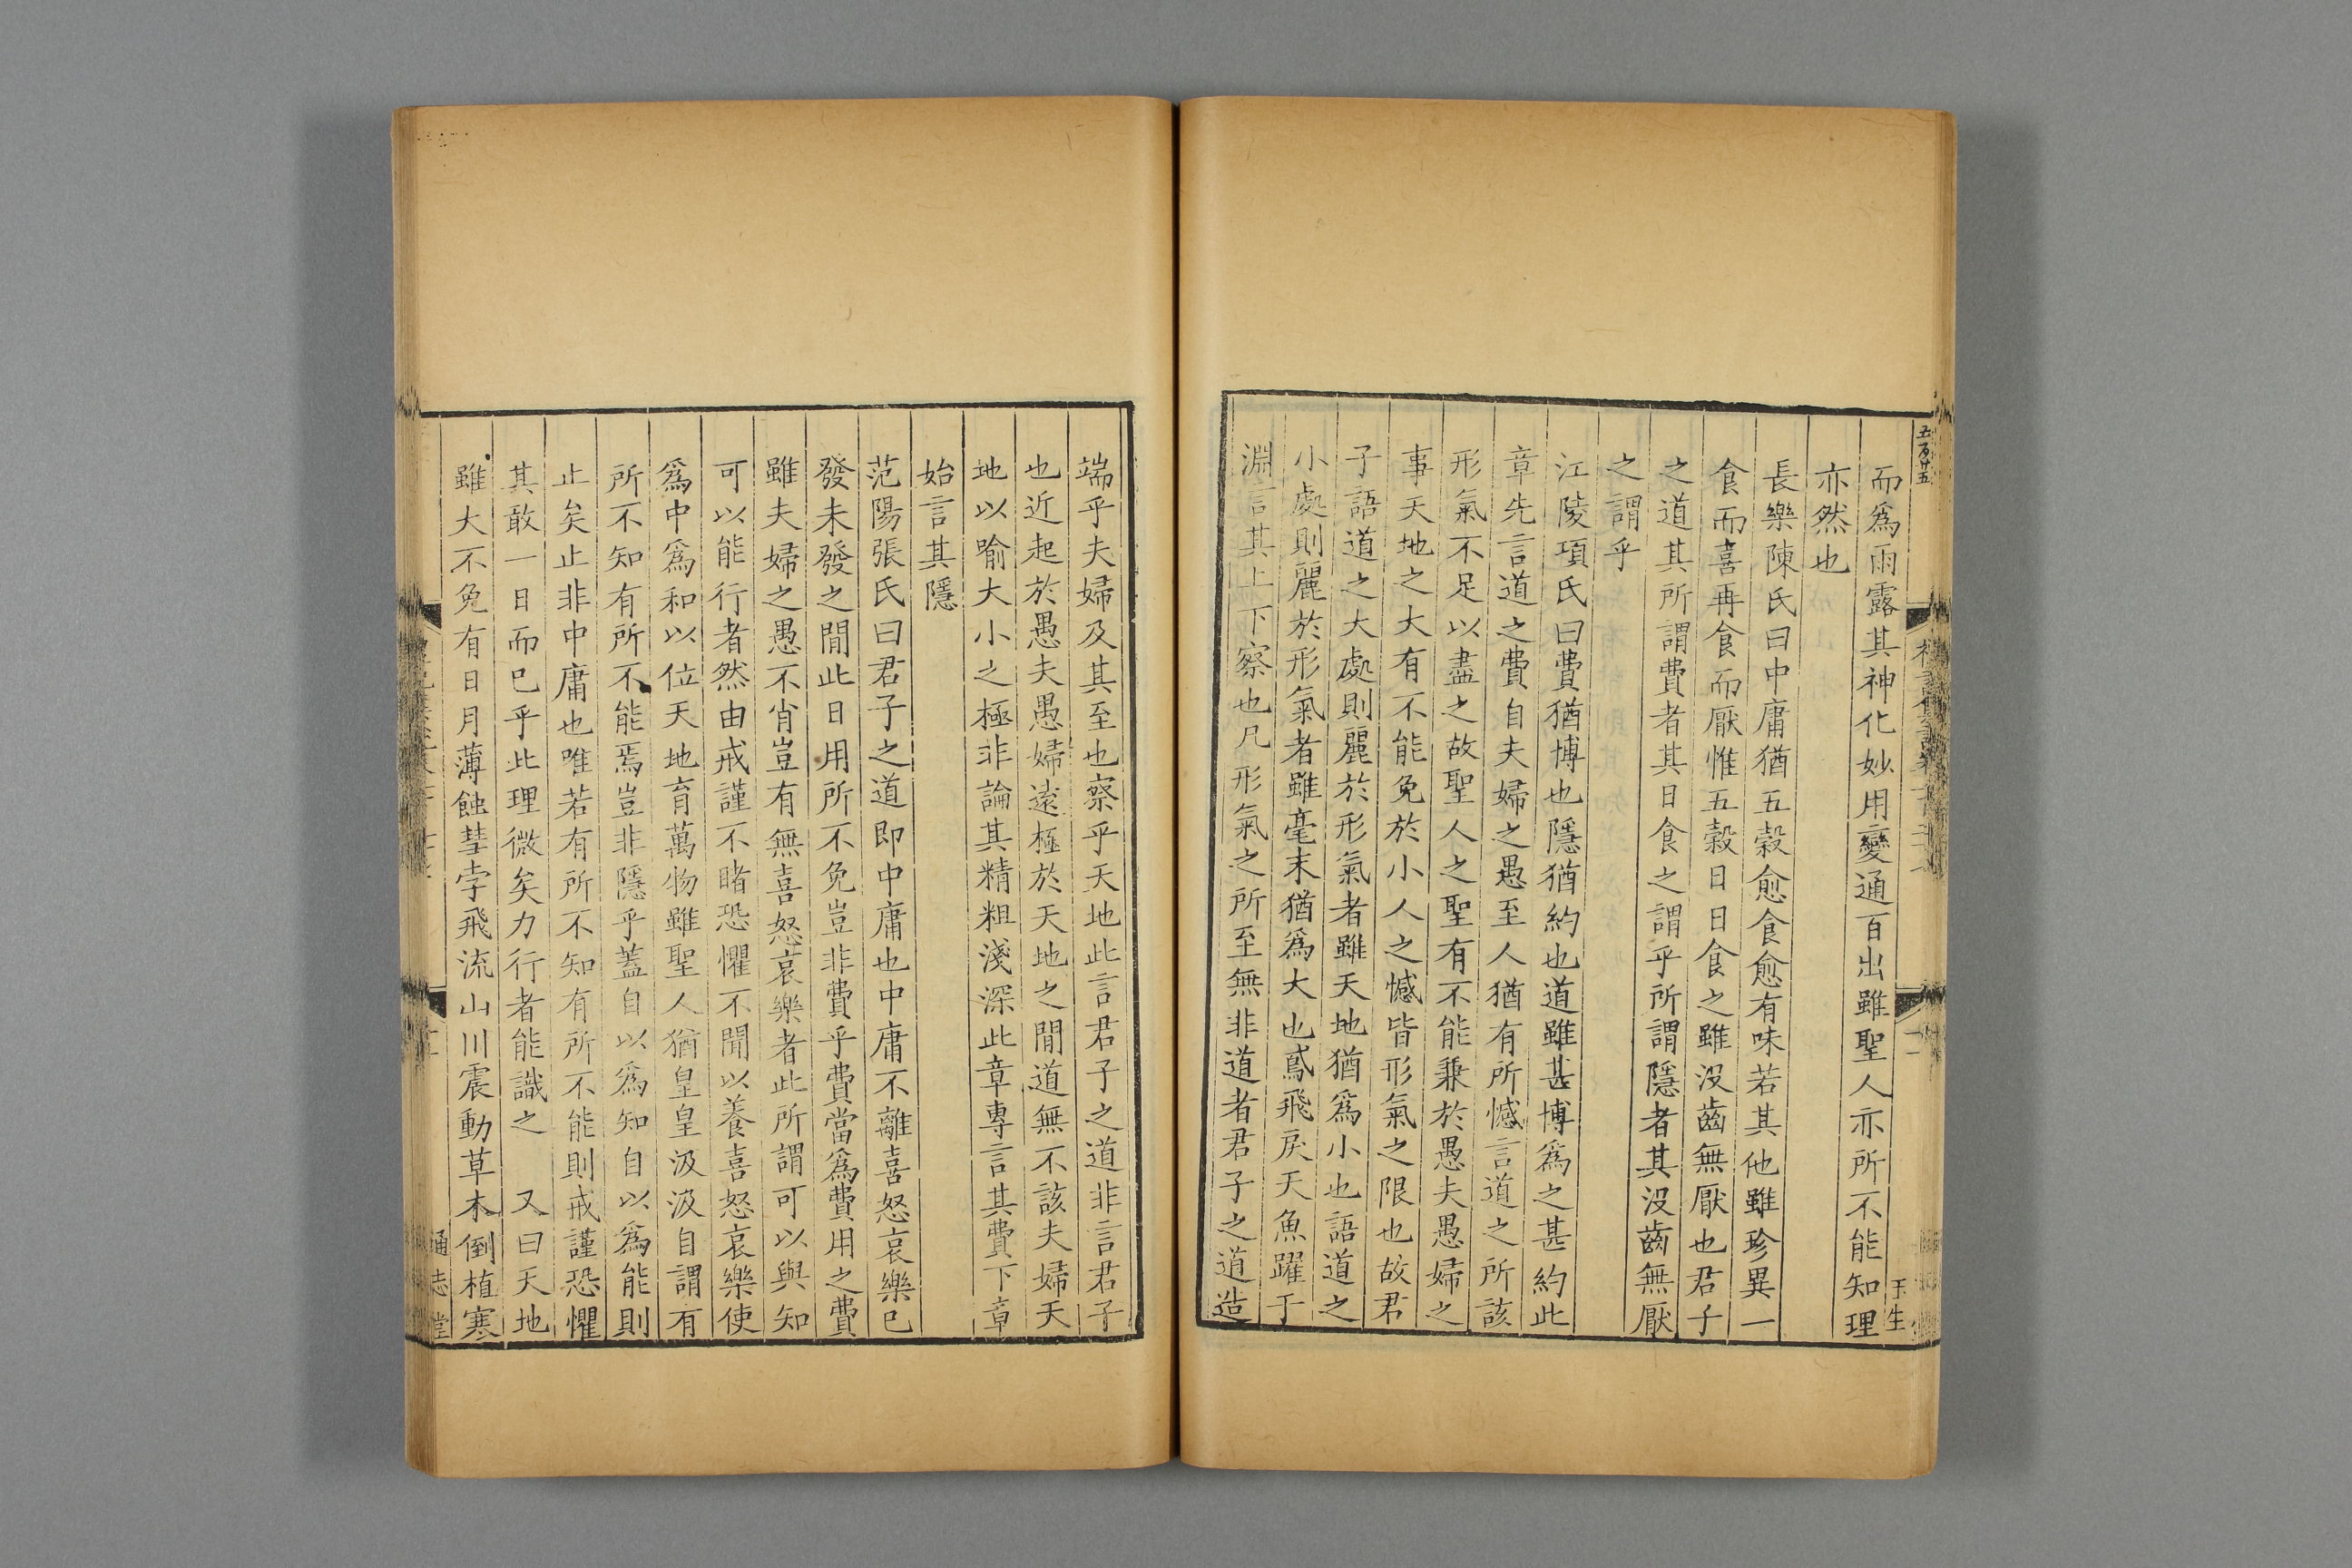 五百廿五
而爲雨露其神化妙用變通百出雖聖人亦所不能知理
亦然也
長樂陳氏曰中庸猶五穀愈食愈有味若其他雖珍異一
食而喜再食而厭惟五穀日日食之雖没齒無厭也君子
之道其所謂費者其日食之謂乎所謂隱者其没齒無厭
之謂乎
江陵項氏曰費猶博也隱猶約也道雖甚博爲之甚約此
章先言道之費自夫婦之愚至人猶有所憾言道之所該
形氣不足以盡之故聖人之聖有不能兼於愚夫愚婦之
事天地之大有不能免於小人之憾皆形氣之限也故君
子語道之大處則麗於形氣者雖天地猶爲小也語道之
小處則麗於形氣者雖毫末猶爲大也鳶飛戾天魚躍于
淵言其上下察也凡形氣之所至無非道者君子之道造
端乎夫婦及其至也察乎天地此言君子之道非言君子
也近起於愚夫愚婦遠極於天地之閒道無不該夫婦天
地以喻大小之極非論其精粗淺深此章專言其費下章
始言其隱
范陽張氏曰君子之道即中庸也中庸不離喜怒哀樂已
發未發之閒此日用所不免豈非費乎費當爲費用之費
雖夫婦之愚不肖豈有無喜怒哀樂者此所謂可以與知
可以能行者然由戒謹不睹恐懼不聞以養喜怒哀樂使
爲中爲和以位天地育萬物雖聖人猶皇皇汲汲自謂有
所不知有所不能焉豈非隱乎蓋自以爲知自以爲能則
止矣止非中庸也唯若有所不知有所不能則戒謹恐懼
其敢一日而已乎此理微矣力行者能識之 又曰天地
雖大不免有日月薄蝕彗孛飛流山川震動草木倒植寒
通志堂